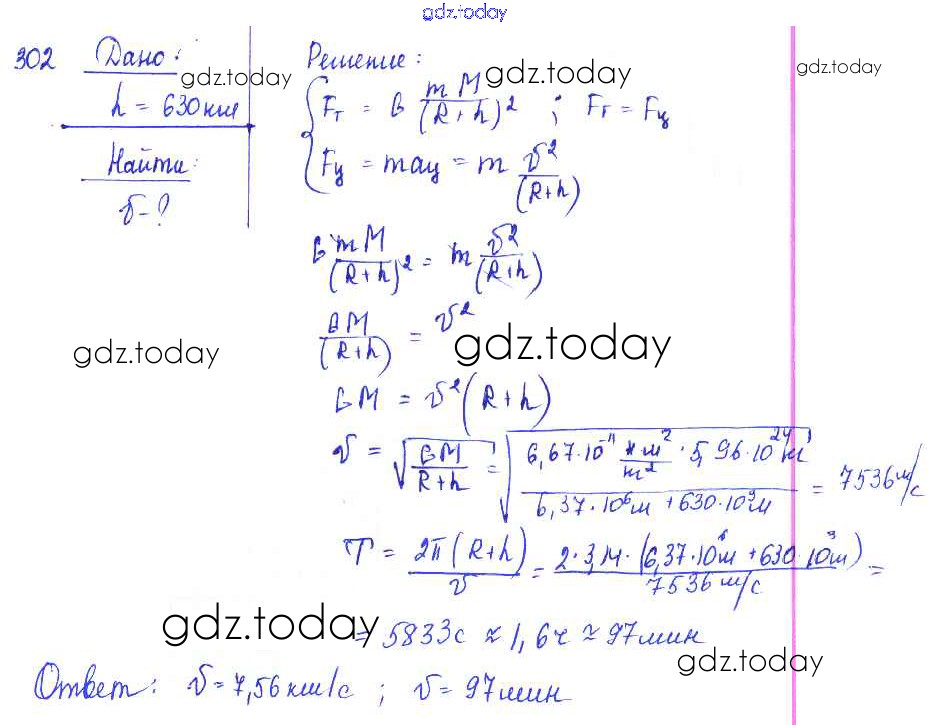 gdz.today
302 Дано: Решение:
gdz.today gdz.today gdz.today
h = 630 км
Fт = G mM/(R+h)² ; Fт = Fц
Найти:
Fц = maц = m v²/(R+h)
v - ?
G mM/(R+h)² = m v²/(R+h)
GM/(R+h) = v²
gdz.today gdz.today
GM = v²(R+h)
v = √(GM/(R+h)) = √((6,67·10⁻¹¹ Н·м²/кг² · 5,96·10²⁴ кг)/(6,37·10⁶м + 630·10³м)) = 7536 м/с
T = 2π(R+h)/v = 2·3,14·(6,37·10⁶м + 630·10³м)/7536 м/с =
gdz.today
= 5833с ≈ 1,6ч ≈ 97мин
gdz.today
Ответ: v = 7,56 км/с ; v = 97мин